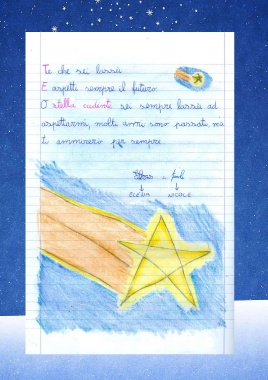 Te che sei lassù
E aspetti sempre il futuro.
O stella cadente sei sempre lassù ad
aspettarmi, molti anni sono passati, ma
ti ammirerò per sempre.
ELENA NATALE